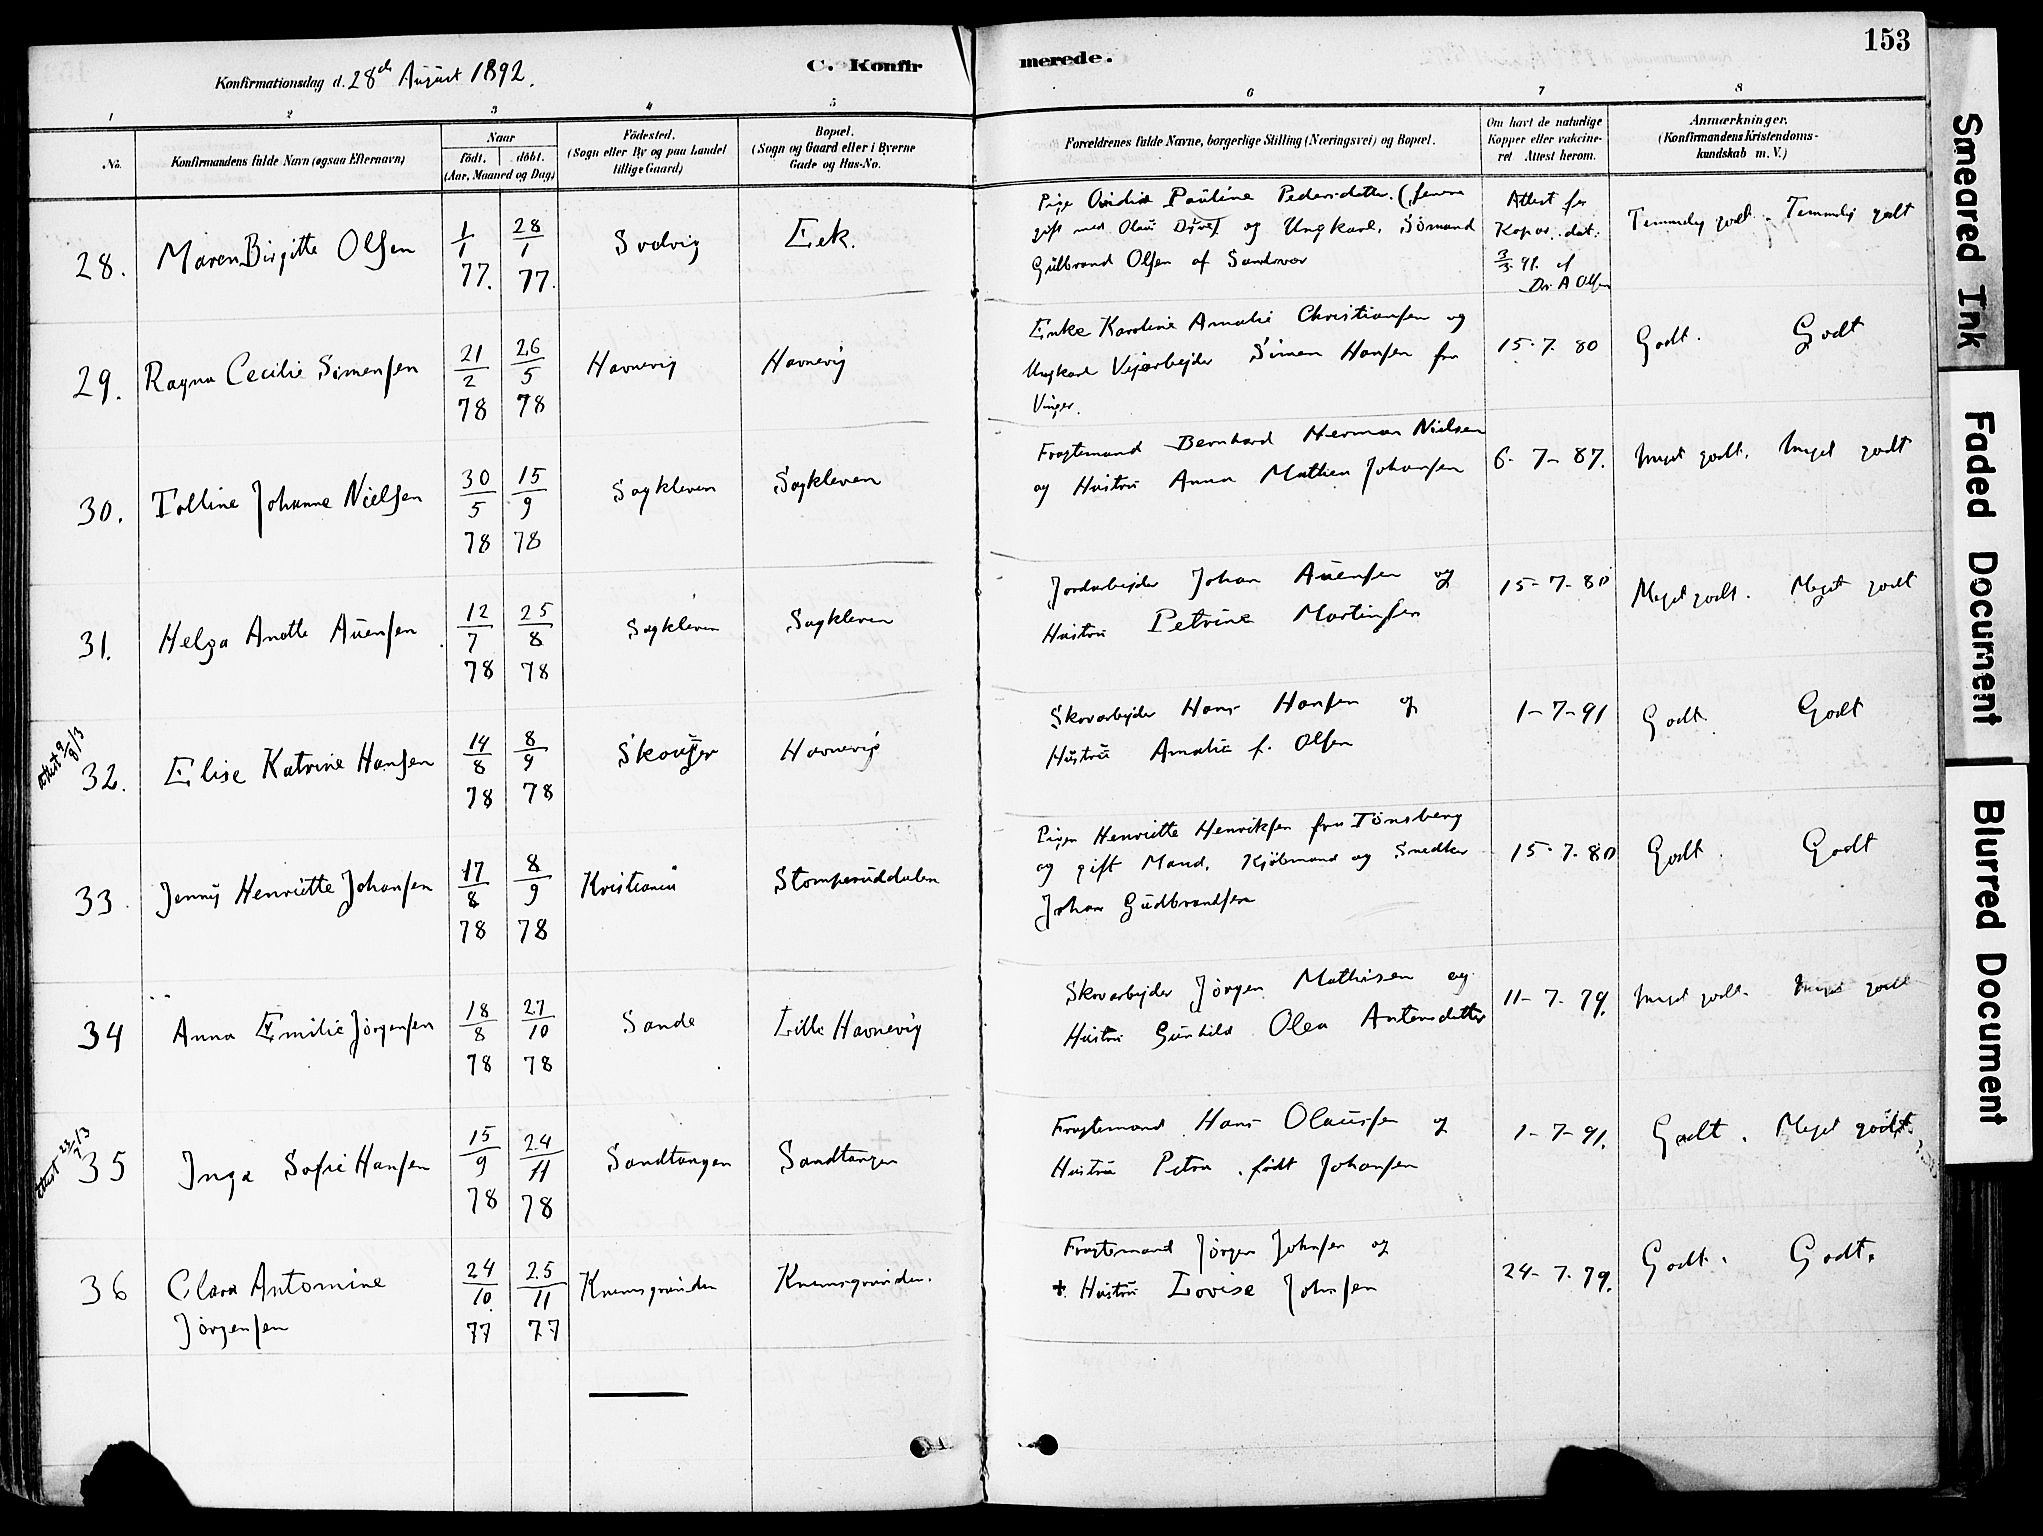 153
Konfirmationsdag d. 28de August 1892.
C. Konfirmerede.
1 2 3 4 5 6 7 8
No.
Konfirmandens fulde Navn (ogsaa Efternavn)
Naar
födt. döbt.
(Aar, Maaned og Dag)
Födested.
(Sogn eller By og paa Landet
tillige Gaard)
Bopæl.
(Sogn og Gaard eller i Byerne
Gade og Hus-No.
Forældrenes fulde Navne, borgerlige Stilling (Næringsvei) og Bopæl.
Om havt de naturlige
Kopper eller vakcine-
ret Attest herom.
Anmærkninger.
(Konfirmandens Kristendoms-
kundskab m. V.)
28. Maren Birgitte Olsen 1/1 77. 28/1 77. Svelvig Eek.
Pige Pauline Pedersdatter (senere
gift med Olaus og Ungkarl, Sömand
Gulbrand Olsen af Sandsvær
Attest for
Kopor. dat.
3/3 91. af
Dr. A Olsen
Temmelig godt. Temmelig godt
29. Ragna Cecilie Simensen 21/2 78 26/5 78 Havnevig Havnevig
Enke Karoline Amalie Christiansen og
Ungkarl Vejarbejder Simen Hansen fra
Vinger.
15-7. 80 Godt. Godt
30. Tolline Johanne Nielsen 30/5 78 15/9 78 Sagkleven Sagkleven
Fragtemand Bernhard Herman Nielsen
og Hustru Anna Mathea Johansen
6-7-87. Meget godt. Meget godt
31. Helga Anette Auensen 12/7 78 25/8 78 Sagkleven Sagkleven
Jordarbejder Johan Auensen og
Hustru Petrine Martinsen
15-7-80 Meget godt. Meget godt
attest 9/9 13
32. Elise Katrine Hansen 14/8 78 8/9 78 Skouger Havnevig
Skovarbejder Hans Hansen og
Hustru Amalie f. Olsen
1-7-91 Godt. Godt
33. Jenny Henriette Johansen 17/8 78 8/9 78 Kristiania Stomperuddalen
Pigen Henriette Henriksen fra Tönsberg
og gift Mand, Kjöbmand og Snedker
Johan Gudbrandsen
15-7.80 Godt. Godt
34 Anna Emilie Jörgensen 18/8 78 27/10 78 Sande Lille Havnevig
Skovarbejder Jörgen Mathisen og
Hustru Gunhild Olea Antonsdatter
11-7.79. Meget godt. Meget godt
attest 13
35 Inga Sofie Hansen 15/9 78 24/11 78 Sandtangen Sandtangen
Fragtemand Hans Olaussen og
Hustru Petra, födt Johansen
1-7-91. Godt. Meget godt.
36 Clara Antomine
Jörgensen
24/10 77 25/11 77 Knemsgrinden Knemsgrinden.
Fragtemand Jörgen Johnsen og
+ Hustru Lovise Johnsen
24-7.79. Godt. Godt.
Smeared Ink
Faded Document
Blurred Document